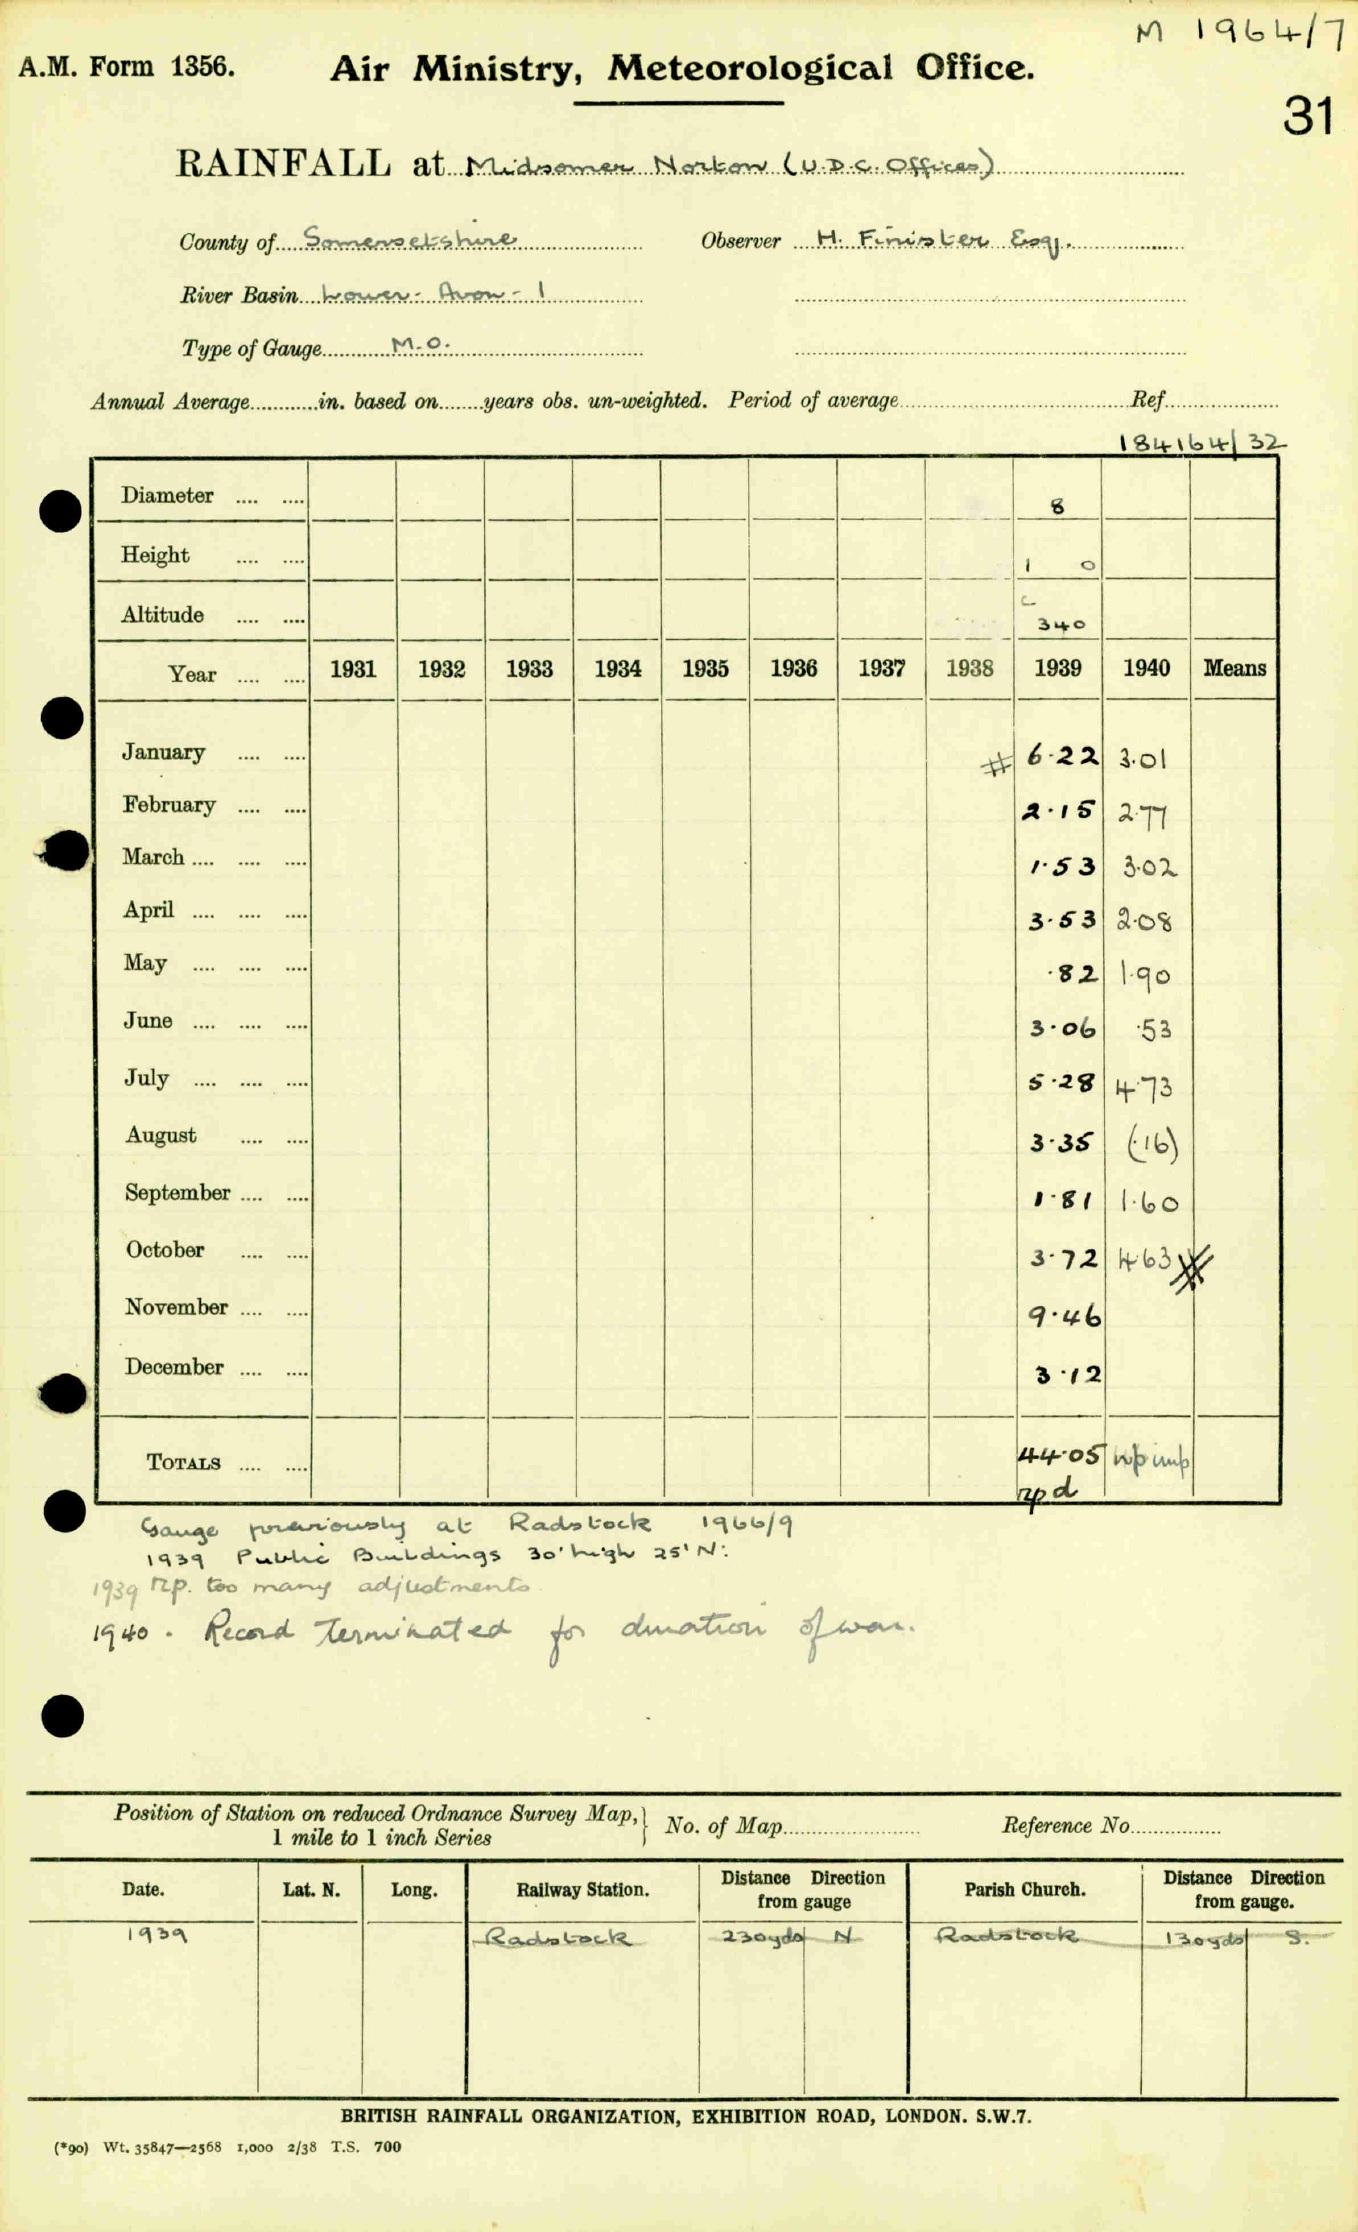 M 1964/7
A.M. Form 1356. Air Ministry, Meteorological Office.
31
RAINFALL at Midsomer Norton (U.D.C. Offices)
County of Somersetshire Observer H. Finister Esq.
River Basin Lower - Avon - 1
Type of Gauge M.O.
Annual Average in. based on years obs. un-weighted. Period of average Ref.
184164/32
Diameter .... .... 8
Height .... .... 1 0
c
Altitude .... .... 340
Year .... .... 1931 1932 1933 1934 1935 1936 1937 1938 1939 1940 Means
January .... .... # 6.22 3.01
February .... .... 2.15 2.77
March .... .... .... 1.53 3.02
April .... .... .... 3.53 2.08
May .... .... .... .82 1.90
June .... .... .... 3.06 .53
July .... .... .... 5.28 4.73
August .... .... 3.35 (.16)
September .... .... 1.81 1.60
October .... .... 3.72 4.63 #
November .... .... 9.46
December .... .... 3.12
TOTALS .... .... 44.05 np imp
np d
Gauge previously at Radstock 1966/9
1939 Public Buildings 30' high 25' N:
1939 np. too many adjustments
1940. Record terminated for duration of war.
Position of Station on reduced Ordnance Survey Map, } No. of Map Reference No.
1 mile to 1 inch Series
Date. Lat. N. Long. Railway Station. Distance Direction from gauge Parish Church. Distance Direction from gauge.
1939 Radstock 230yds N Radstock 130yds S.
BRITISH RAINFALL ORGANIZATION, EXHIBITION ROAD, LONDON. S.W.7.
(*90) Wt. 35847—2568 1,000 2/38 T.S. 700